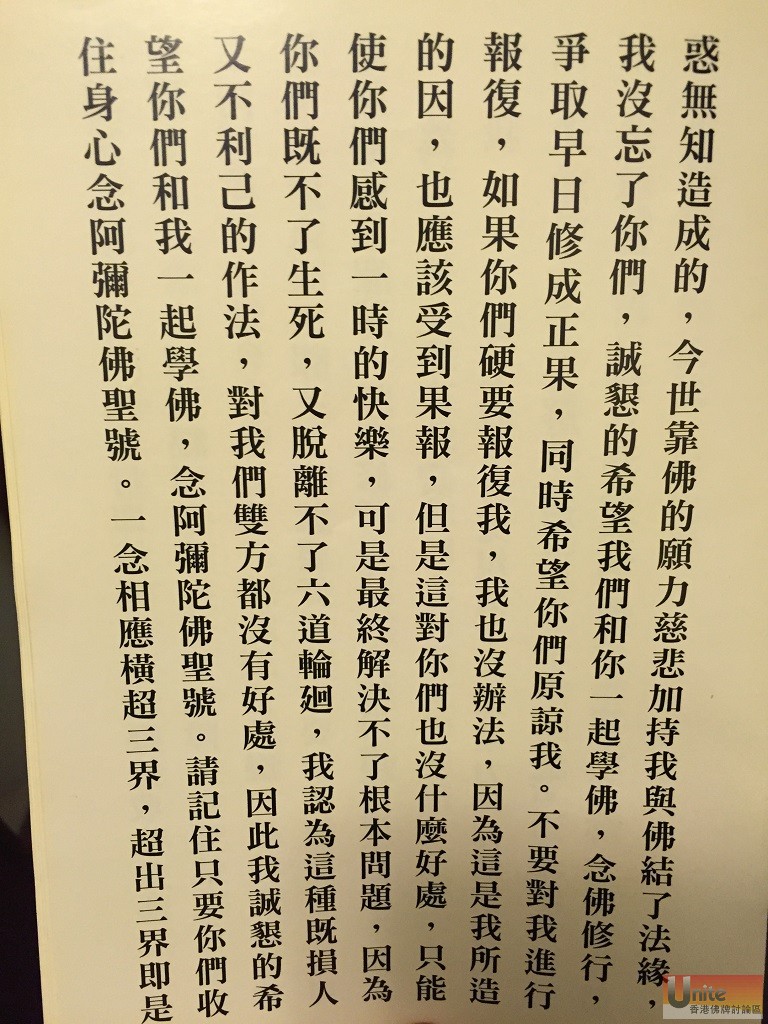 惑無知造成的，今世靠佛的願力慈悲加持我與佛結了法緣，
我沒忘了你們，誠懇的希望我們和你一起學佛，念佛修行，
爭取早日修成正果，同時希望你們原諒我。不要對我進行
報復，如果你們硬要報復我，我也沒辦法，因為這是我所造
的因，也應該受到果報，但是這對你們也沒什麼好處，只能
使你們感到一時的快樂，可是最終解決不了根本問題，因為
你們既不了生死，又脫離不了六道輪迴，我認為這種既損人
又不利己的作法，對我們雙方都沒有好處，因此我誠懇的希
望你們和我一起學佛，念阿彌陀佛聖號。請記住只要你們收
住身心念阿彌陀佛聖號。一念相應橫超三界，超出三界即是
Unite
香港佛牌討論區